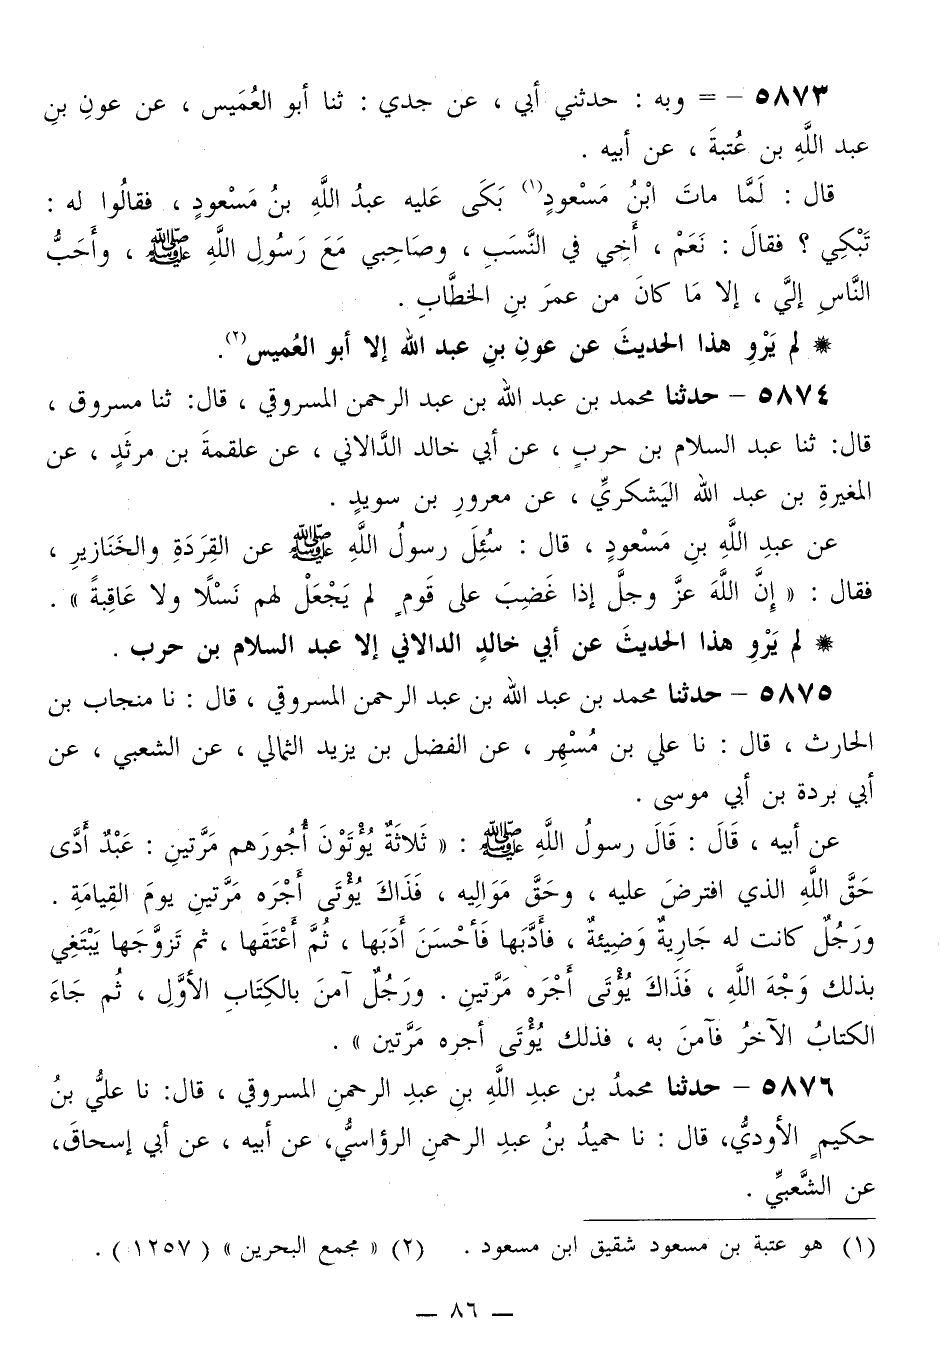 ٥٨٧٣ – = وبه : حدثني أبي ، عن جدي : ثنا أبو العُمَيس ، عن عونِ بنِ
عبد اللَّهِ بن عُتبةَ ، عن أبيه .
قال : لَمَّا ماتَ ابْنُ مَسْعودٍ(١) بَكَى عَليه عبدُ اللَّهِ بنُ مَسْعودٍ ، فقالُوا له :
تَبْكِي ؟ فقالَ : نَعَمْ ، أَخِي في النَّسَبِ ، وصَاحِبي مَعَ رَسُولِ اللَّهِ ﷺ ، وأَحَبُّ
النَّاسِ إليَّ ، إلا مَا كانَ من عمرَ بنِ الخطَّابِ .
* لم يَرْوِ هذا الحديثَ عن عونِ بنِ عبد الله إلا أبو العُميس(٢).
٥٨٧٤ – حدثنا محمد بن عبد الله بن عبد الرحمن المسروقي ، قال: ثنا مسروق ،
قال: ثنا عبد السلام بن حربٍ ، عن أبي خالد الدَّالاني ، عن علقمةَ بن مرثَدٍ ، عن
المغيرةِ بن عبد الله اليَشكريِّ ، عن معرورِ بن سويدٍ .
عن عبدِ اللَّهِ بنِ مَسْعودٍ ، قال : سُئِلَ رسولُ اللَّهِ ﷺ عن القِرَدَةِ والخَنَازيرِ ،
فقال : « إِنَّ اللَّهَ عزَّ وجلَّ إذا غَضِبَ على قَومٍ لم يَجْعَلْ لهم نَسْلًا ولا عَاقِبةً » .
* لم يَرْوِ هذا الحديثَ عن أبي خالدٍ الدالاني إلا عبد السلام بن حرب .
٥٨٧٥ – حدثنا محمد بن عبد الله بن عبد الرحمن المسروقي ، قال : نا منجاب بن
الحارث ، قال : نا علي بن مُسْهِر ، عن الفضل بن يزيد الثمالي ، عن الشعبي ، عن
أبي بردة بن أبي موسى .
عن أبيه ، قَالَ : قَالَ رسولُ اللَّهِ ﷺ : « ثَلاثَةٌ يُؤْتَوْنَ أُجُورَهم مَرَّتينِ : عَبْدٌ أَدَّى
حَقَّ اللَّهِ الذي افترضَ عليه ، وحَقَّ مَوَاليه ، فَذَاكَ يُؤْتَى أَجْرَه مَرَّتينِ يومَ القِيامَةِ .
ورَجُلٌ كانت له جَارِيةٌ وَضِيئةٌ ، فأَدَّبَها فَأَحْسَنَ أَدَبَها ، ثُمَّ أَعْتَقَها ، ثم تَزوَّجَها يَبْتَغِي
بذلك وَجْهَ اللَّهِ ، فَذَاكَ يُؤْتَى أَجْرَه مَرَّتينِ . ورَجُلٌ آمنَ بالكِتَابِ الأوَّلِ ، ثُم جَاءَ
الكتابُ الآخرُ فآمنَ به ، فذلك يُؤْتَى أجره مَرَّتين » .
٥٨٧٦ – حدثنا محمدُ بن عبدِ اللَّهِ بنِ عبدِ الرحمنِ المسروقي ، قال: نا عليُّ بنُ
حكيمٍ الأوديُّ، قال : نا حميدُ بنُ عبدِ الرحمنِ الرؤاسيُّ، عن أبيه ، عن أبي إسحاقَ،
عن الشَّعبيِّ .
(١) هو عتبة بن مسعود شقيق ابن مسعود . (٢) « مجمع البحرين » ( ١٢٥٧ ) .
— ٨٦ —